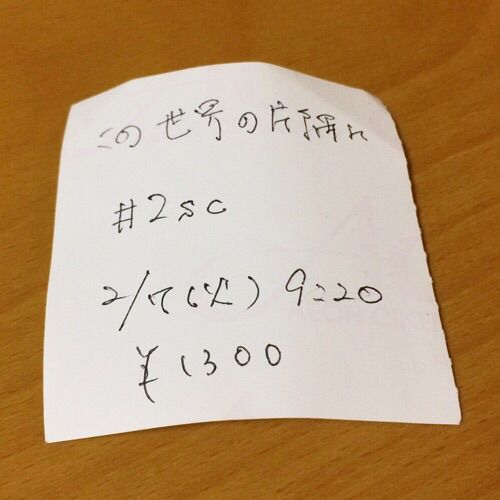 この世界の片隅に
#2sc
2/7(火) 9:20
¥1300